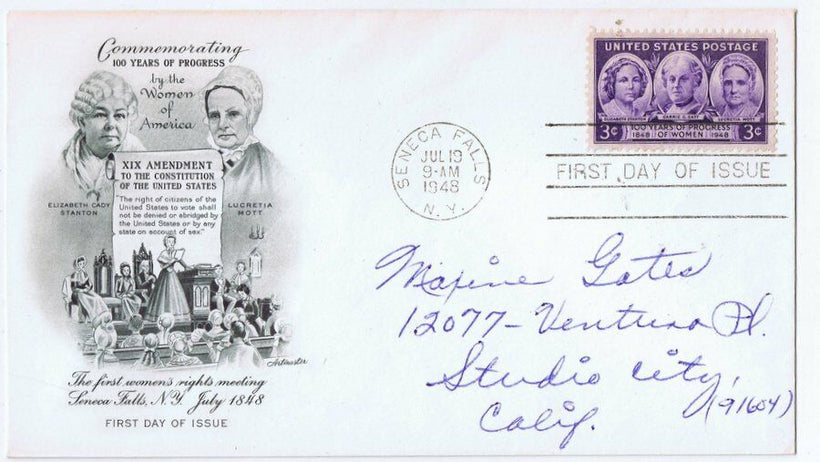 Commemorating
100 YEARS OF PROGRESS
by the
Women
of
America
XIX AMENDMENT
TO THE CONSTITUTION
OF THE UNITED STATES
"The right of citizens of the
United States to vote shall
not be denied or abridged by
the United States or by any
state on account of sex."
ELIZABETH CADY
STANTON
LUCRETIA
MOTT
Artmaster
The first women's rights meeting
Seneca Falls, N.Y. July 1848
FIRST DAY OF ISSUE
SENECA FALLS
JUL 19
9-AM
1948
N. Y.
UNITED STATES POSTAGE
ELIZABETH STANTON
CARRIE C. CATT
LUCRETIA MOTT
3¢ 100 YEARS OF PROGRESS 3¢
1848 OF WOMEN 1948
FIRST DAY OF ISSUE
Maxine Gates
12077- Ventura Pl.
Studio City,
Calif. (91604)